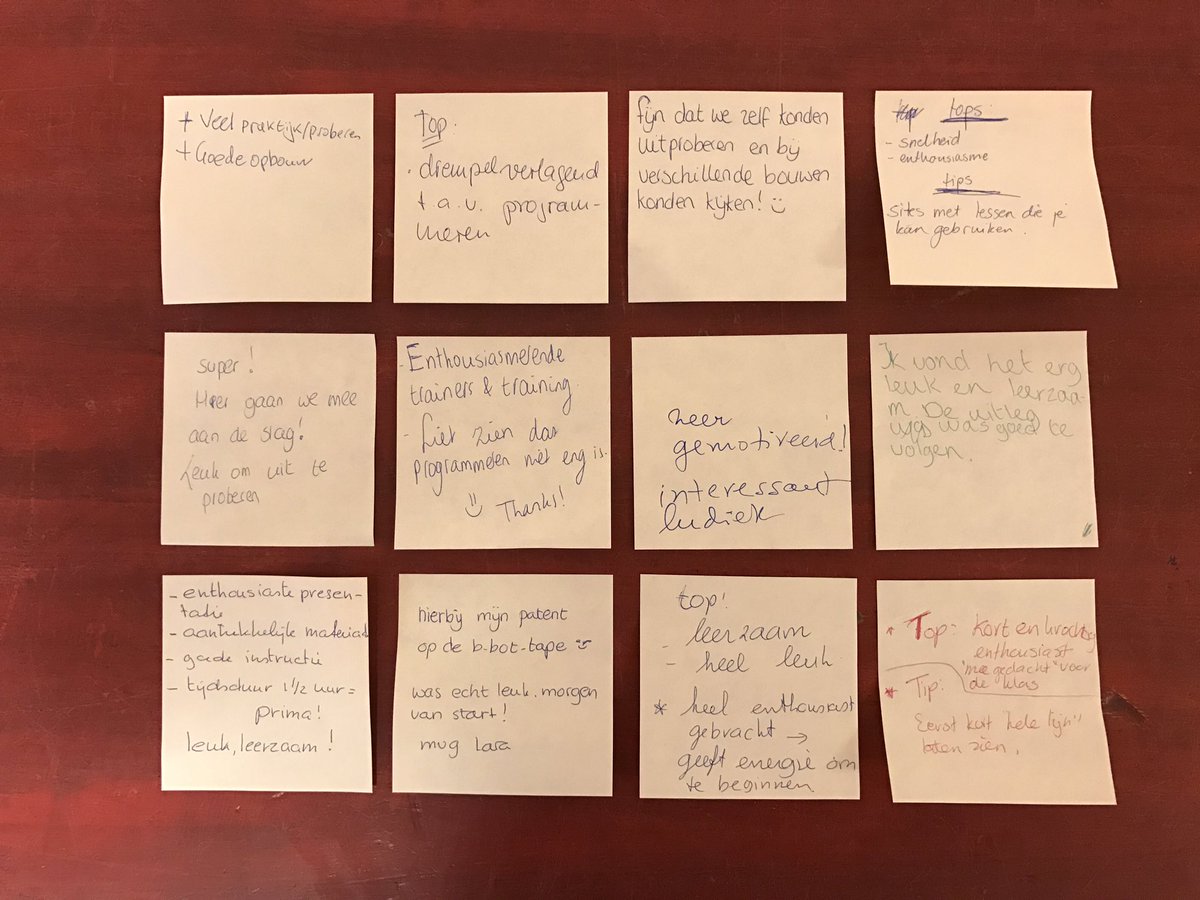 + Veel praktijk/proberen
+ Goede opbouw
Top:
· drempelverlagend
t.a.v. program-
meren
fijn dat we zelf konden
uitproberen en bij
verschillende bouwen
konden kijken!
tops:
- snelheid
- enthousiasme
tips
sites met lessen die je
kan gebruiken.
super!
Hier gaan we mee
aan de slag!
Leuk om uit te
proberen
- Enthousiasmerende
trainers & training.
- Liet zien dat
programmeren niet eng is.
Thanks!
zeer
gemotiveerd!
interessant
ludiek
Ik vond het erg
leuk en leerzaa-
m. De uitleg
was goed te
volgen.
- enthousiaste presen-
tatie
- aantrekkelijke materiaal
- goede instructie
- tijdsduur 1½ uur =
prima!
leuk, leerzaam!
hierbij mijn patent
op de b-bot-tape
was echt leuk. morgen
van start!
mug Lara
top!
- leerzaam
- heel leuk
* heel enthousiast
gebracht →
geeft energie om
te beginnen.
* Top: Kort en krachtig
enthousiast
"mee gedacht" voor
de klas
* Tip:
Eerst kort "hele lijn"
laten zien.